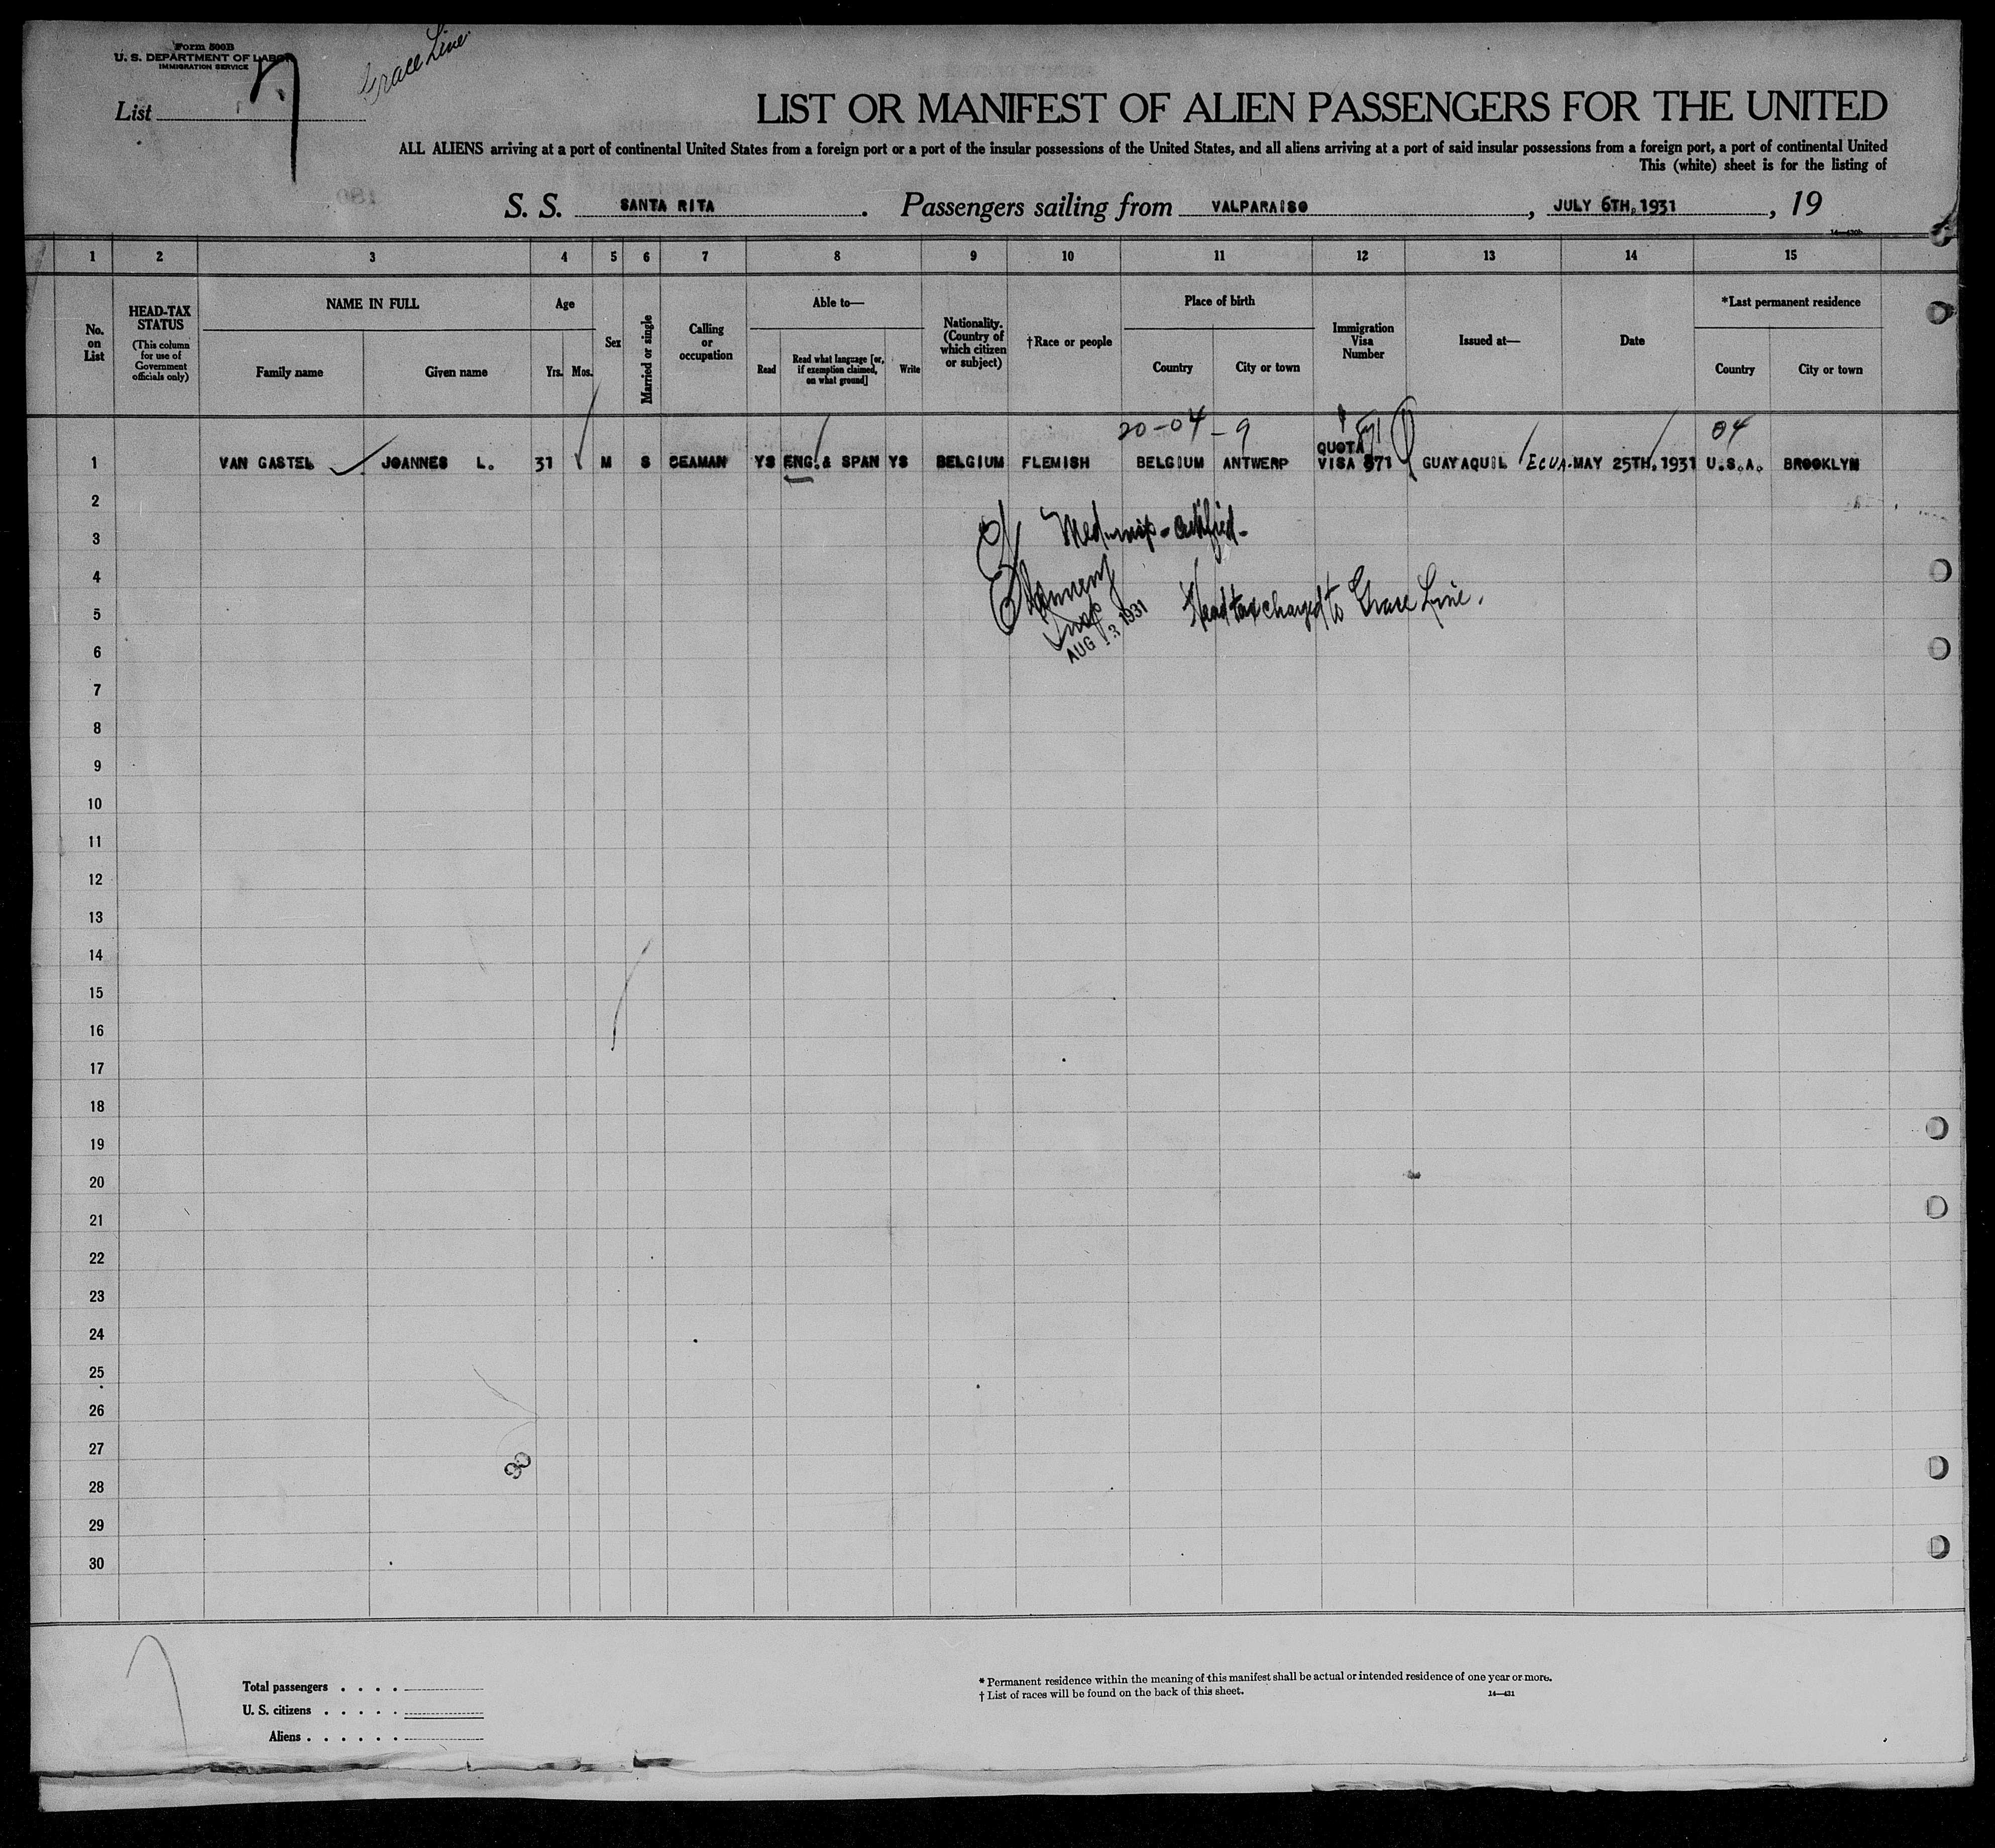 Form 500B
U. S. DEPARTMENT OF LABOR
IMMIGRATION SERVICE
Grace Line
List 1
LIST OR MANIFEST OF ALIEN PASSENGERS FOR THE UNITED
ALL ALIENS arriving at a port of continental United States from a foreign port or a port of the insular possessions of the United States, and all aliens arriving at a port of said insular possessions from a foreign port, a port of continental United
This (white) sheet is for the listing of
S. S. SANTA RITA. Passengers sailing from VALPARAISO, JULY 6TH, 1931, 19
1 2 3 4 5 6 7 8 9 10 11 12 13 14 15
No. on List
HEAD-TAX STATUS (This column for use of Government officials only)
NAME IN FULL
Family name Given name
Age
Yrs. Mos.
Sex
Married or single
Calling or occupation
Able to—
Read
Read what language [or, if exemption claimed, on what ground]
Write
Nationality. (Country of which citizen or subject)
†Race or people
Place of birth
Country City or town
Immigration Visa Number
Issued at—
Date
*Last permanent residence
Country City or town
20-04-9
04
QUOTA
1 VAN GASTEL JOANNES L. 31 M S SEAMAN YS ENG. & SPAN YS BELGIUM FLEMISH BELGIUM ANTWERP VISA 871 GUAYAQUIL ECUA. MAY 25TH, 1931 U.S.A. BROOKLYN
2
3
certified
4
5
Head tax charged to Grace Line.
Insp
AUG 13 1931
6
7
8
9
10
11
12
13
14
15
16
17
18
19
20
21
22
23
24
25
26
27
28
29
30
Total passengers . . . .
U. S. citizens . . . . .
Aliens . . . . . .
* Permanent residence within the meaning of this manifest shall be actual or intended residence of one year or more.
† List of races will be found on the back of this sheet.
14—421